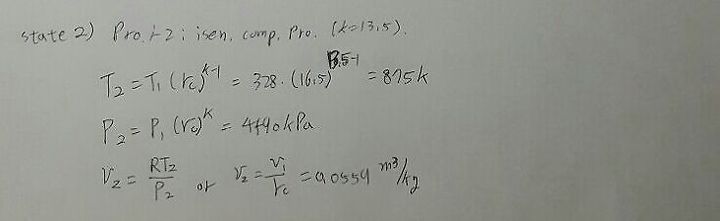 state 2) Pro. 1-2 ; isen. comp. Pro. (k=13.5).
T₂ = T₁ (rc)^k-1 = 328. (16.5)^13.5-1 = 875k
P₂ = P₁ (rc)^k = 4490kPa
V₂ = RT₂/P₂ or V₂ = V₁/rc = 0.0559 m³/kg